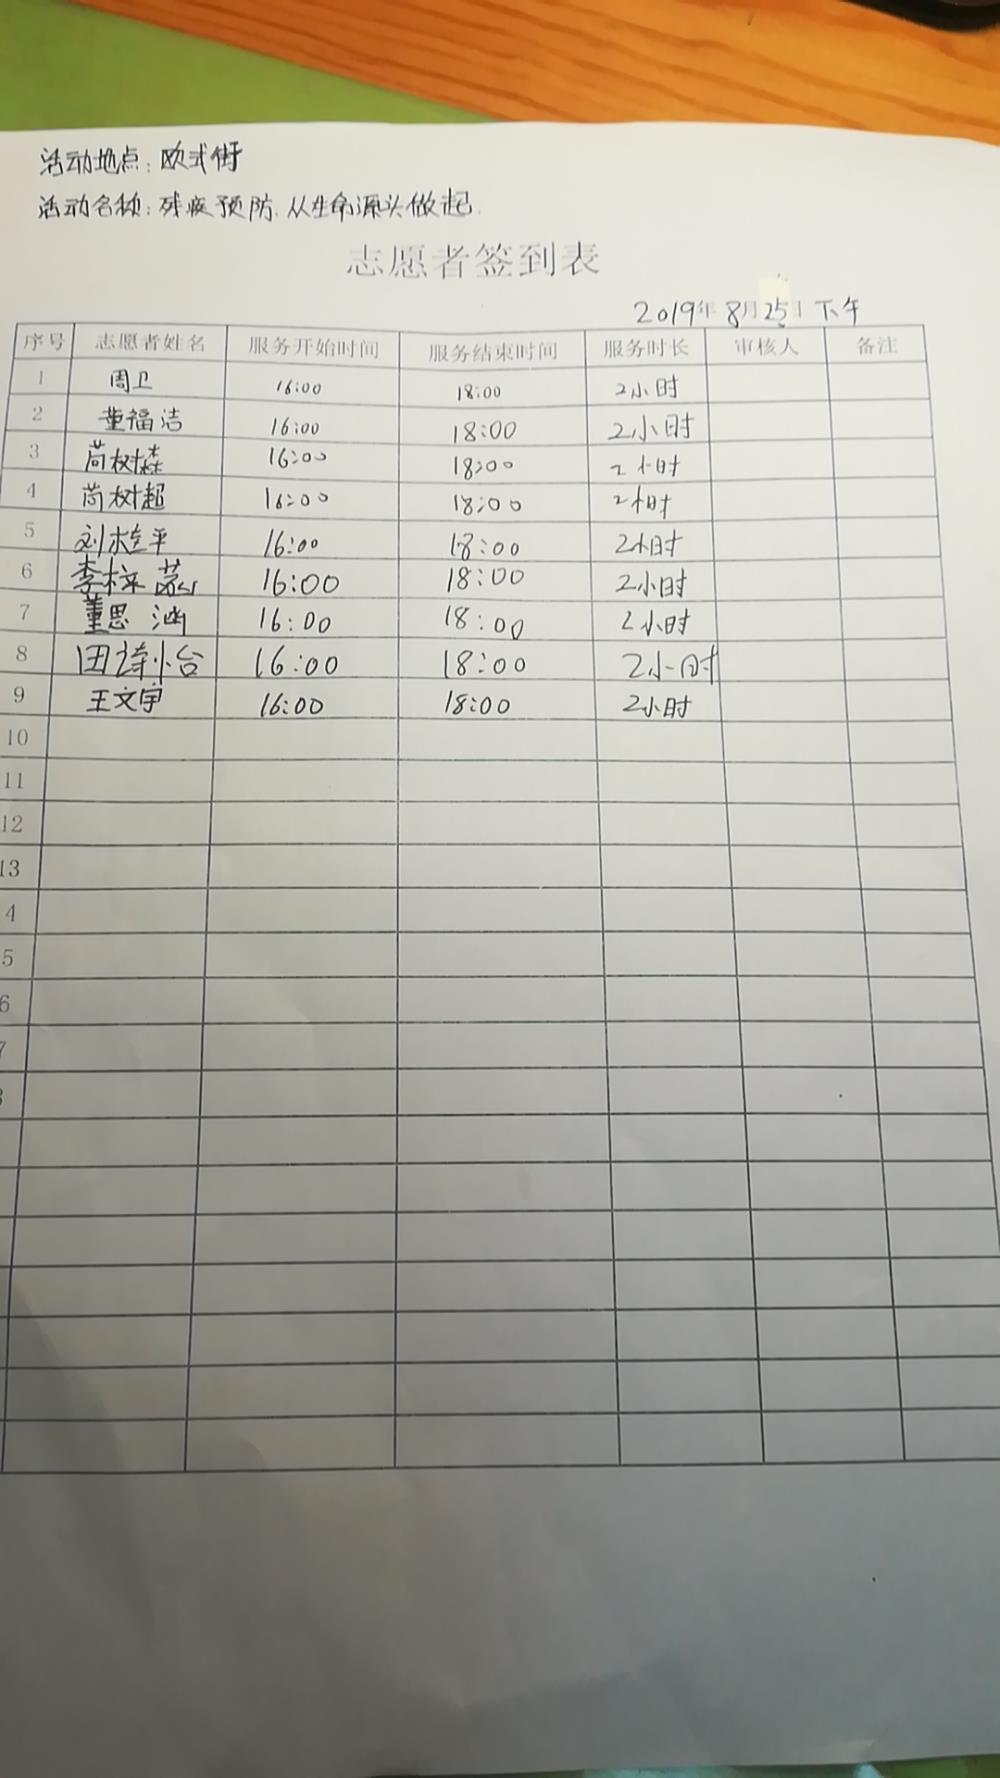 活动地点:欧式街
活动名称:残疾预防.从生命源头做起.
志愿者签到表
2019年8月25日下午
序号 志愿者姓名 服务开始时间 服务结束时间 服务时长 审核人 备注
1 周卫 16:00 18:00 2小时
2 董福洁 16:00 18:00 2小时
3 苘树森 16:00 18:00 2小时
4 苘树超 16:00 18:00 2小时
5 刘桂平 16:00 18:00 2小时
6 李梓 16:00 18:00 2小时
7 董思涵 16:00 18:00 2小时
8 田诗怡 16:00 18:00 2小时
9 王文宇 16:00 18:00 2小时
10
11
12
13
4
5
6
7